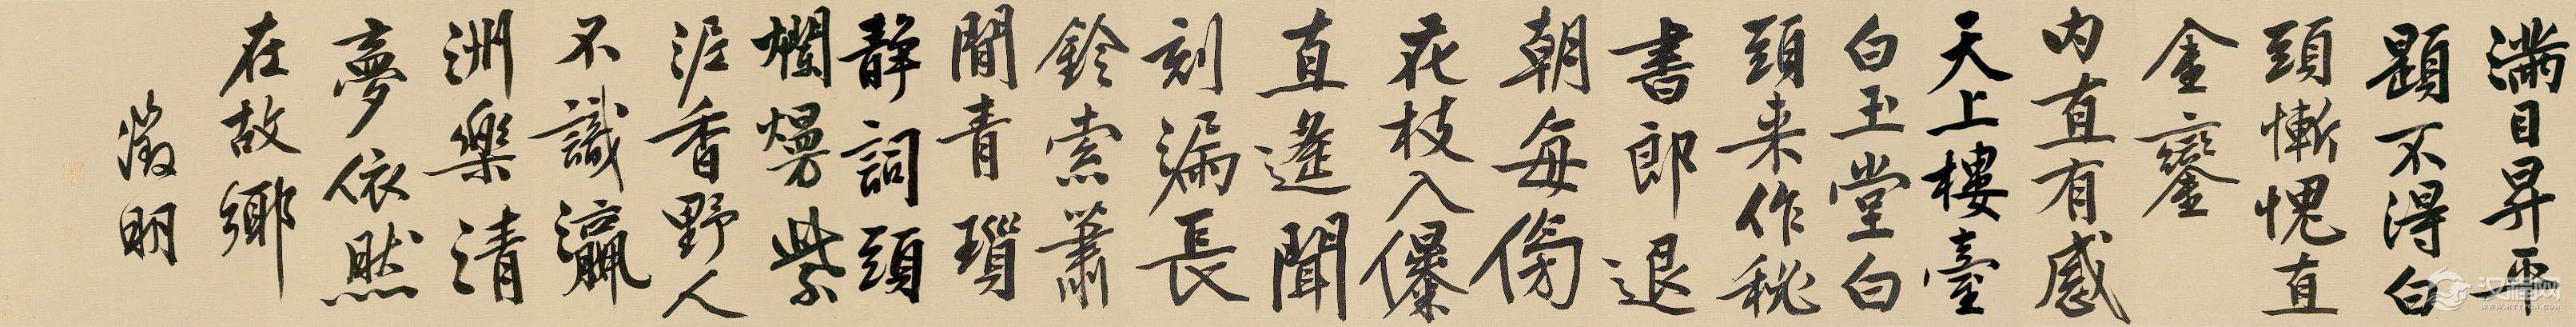 滿目昇平
題不得白
頭慚愧直
金鑾
内直有感
天上樓臺
白玉堂白
頭来作秘
書郎退
朝每傍
花枝入儤
直遥聞
刻漏長
鈴索蕭
閒青瑣
靜詞頭
爛熳紫
泥香野人
不識瀛
洲樂清
夢依然
在故鄉
徵明
汉程网
WWW.HTTPCN.COM